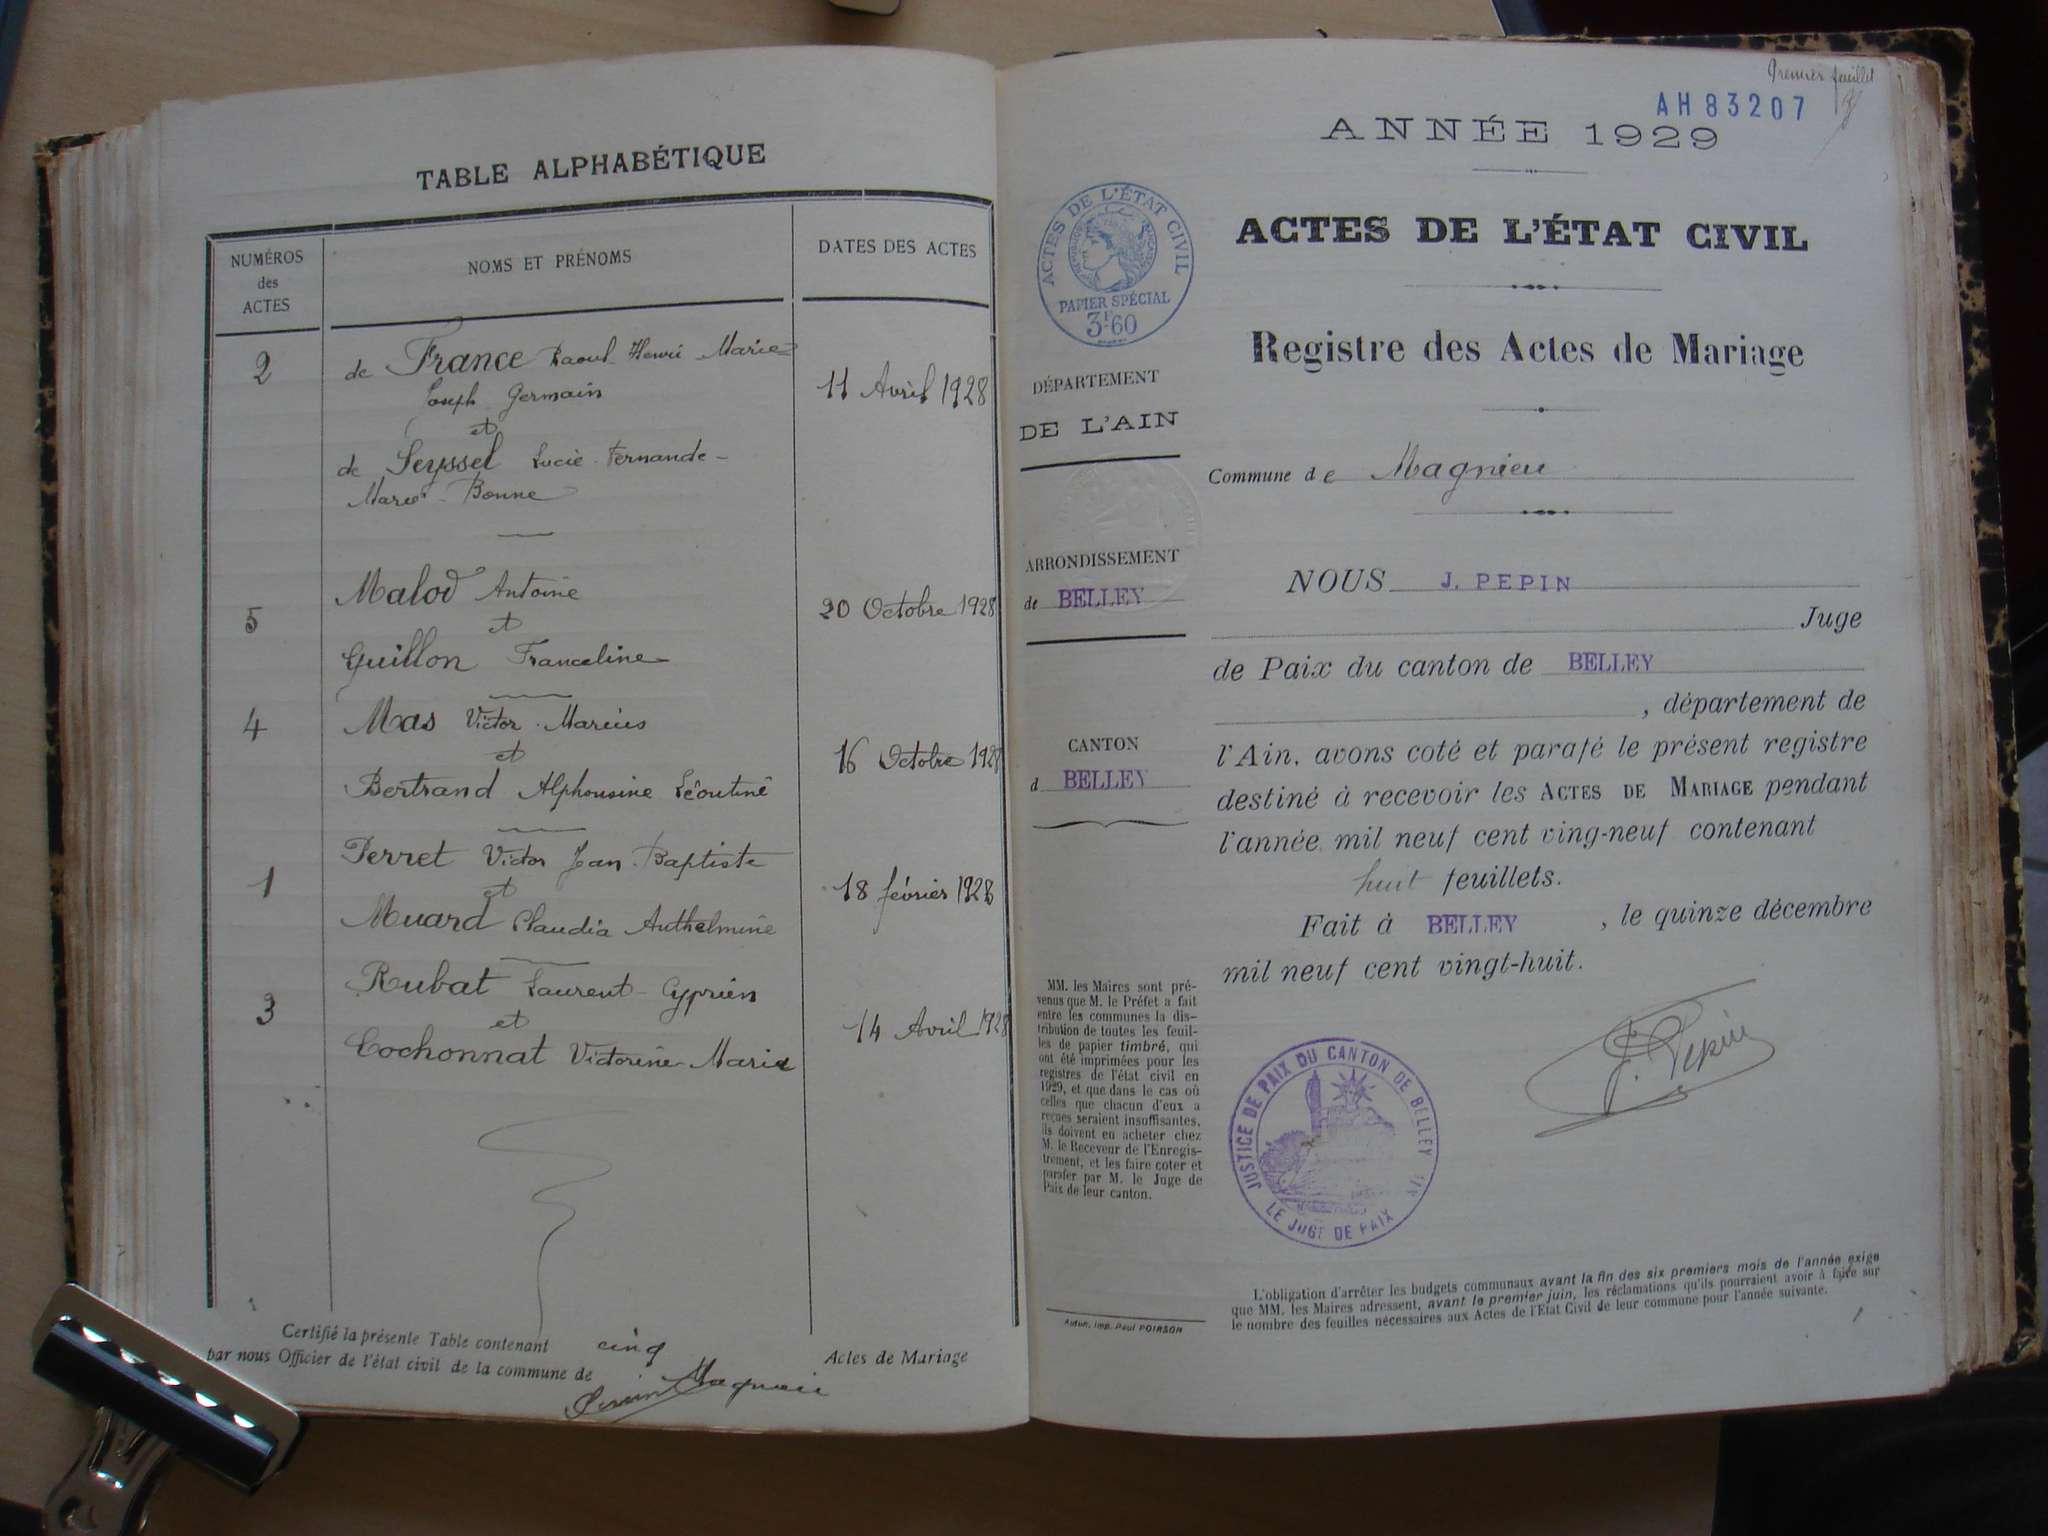 TABLE ALPHABÉTIQUE
NUMÉROS
des
ACTES
NOMS ET PRÉNOMS
DATES DES ACTES
2
de France Raoul Henri Marie-
Joseph Germain
11 Avril 1928
et
de Seyssel Lucie Fernande-
Marie-Bonne
5
Malod Antoine
20 Octobre 1928
et
Guillon Franceline
4
Mas Victor Marius
16 Octobre 1928
et
Bertrand Alphonsine Léontine
1
Perret Victor Jean-Baptiste
18 février 1928
et
Muard Claudia Anthelmine
3
Rubat Laurent-Cyprien
14 Avril 1928
et
Cochonnat Victorine-Marie
Certifié la présente Table contenant cinq Actes de Mariage
par nous Officier de l'état civil de la commune de Magnieu
Premier feuillet
AH83207
ANNÉE 1929
ACTES DE L'ÉTAT CIVIL
PAPIER SPÉCIAL
3F60
ACTES DE L'ÉTAT CIVIL
Registre des Actes de Mariage
DÉPARTEMENT
DE L'AIN
Commune de Magnieu
ARRONDISSEMENT
de BELLEY
CANTON
d BELLEY
NOUS J. PEPIN
Juge
de Paix du canton de BELLEY
, département de
l'Ain, avons coté et parafé le présent registre
destiné à recevoir les ACTES DE MARIAGE pendant
l'année mil neuf cent ving-neuf contenant
huit feuillets.
Fait à BELLEY , le quinze décembre
mil neuf cent vingt-huit.
J. Pepin
MM. les Maires sont pré-
venus que M. le Préfet a fait
entre les communes la dis-
tribution de toutes les feuil-
les de papier timbré, qui
ont été imprimées pour les
registres de l'état civil en
1929, et que dans le cas où
celles que chacun d'eux a
reçues seraient insuffisantes,
ils doivent en acheter chez
M. le Receveur de l'Enregis-
trement, et les faire coter et
parafer par M. le Juge de
Paix de leur canton.
JUSTICE DE PAIX DU CANTON DE BELLEY
LE JUGE DE PAIX
L'obligation d'arrêter les budgets communaux avant la fin des six premiers mois de l'année exige
que MM. les Maires adressent, avant le premier juin, les réclamations qu'ils pourraient avoir à faire sur
le nombre des feuilles nécessaires aux Actes de l'État Civil de leur commune pour l'année suivante.
Autun, Imp. Paul POIRSON